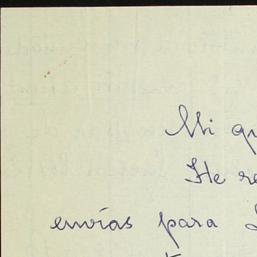 Mi qu
He re
envías para